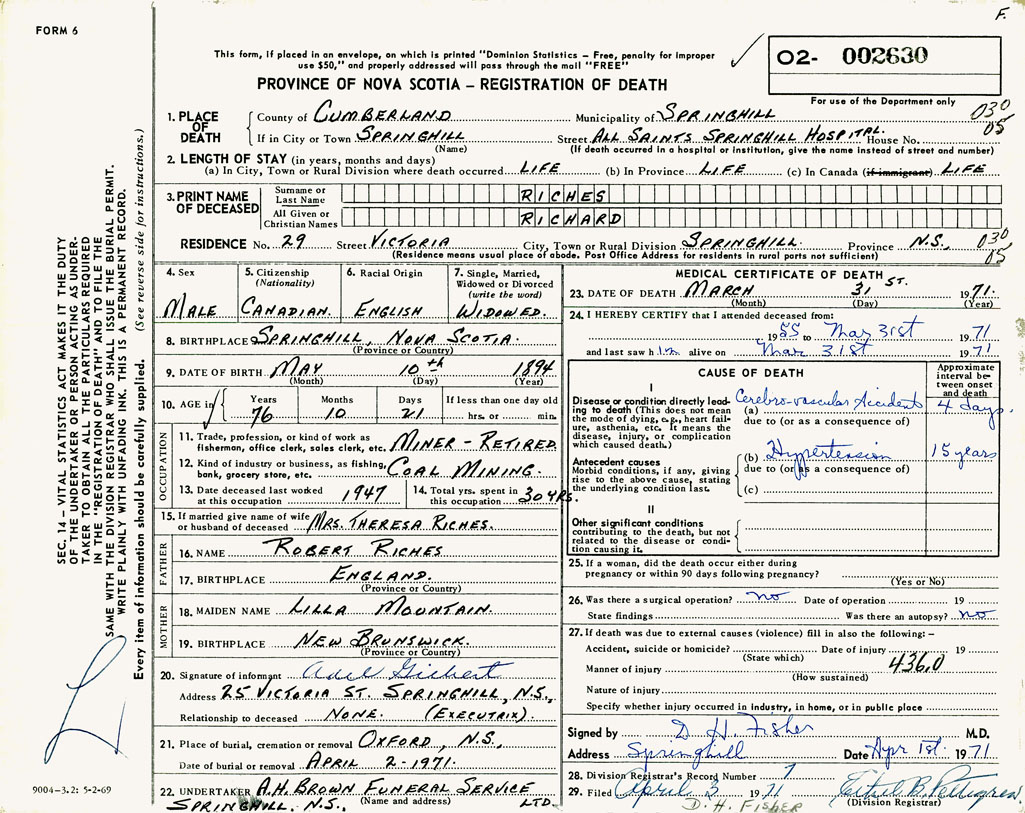 F.
FORM 6
This form, if placed in an envelope, on which is printed "Dominion Statistics – Free, penalty for improper
use $50," and properly addressed will pass through the mail "FREE"
PROVINCE OF NOVA SCOTIA – REGISTRATION OF DEATH
02- 002630
For use of the Department only
030
05
1. PLACE OF DEATH
County of CUMBERLAND Municipality of SPRINGHILL
If in City or Town SPRINGHILL Street ALL SAINTS SPRINGHILL HOSPITAL. House No.
(Name) (If death occurred in a hospital or institution, give the name instead of street and number)
2. LENGTH OF STAY (in years, months and days)
(a) In City, Town or Rural Division where death occurred LIFE (b) In Province LIFE (c) In Canada (if immigrant) LIFE
3. PRINT NAME OF DECEASED
Surname or Last Name RICHES
All Given or Christian Names RICHARD
RESIDENCE No. 29 Street VICTORIA City, Town or Rural Division SPRINGHILL. Province N.S. 030
05
(Residence means usual place of abode. Post Office Address for residents in rural parts not sufficient)
4. Sex
MALE
5. Citizenship (Nationality)
CANADIAN.
6. Racial Origin
ENGLISH
7. Single, Married, Widowed or Divorced (write the word)
WIDOWED.
8. BIRTHPLACE SPRINGHILL, NOVA SCOTIA.
(Province or Country)
9. DATE OF BIRTH MAY 10th 1894
(Month) (Day) (Year)
10. AGE in Years Months Days If less than one day old
76 10 21 hrs. or min.
OCCUPATION
11. Trade, profession, or kind of work as
fisherman, office clerk, sales clerk, etc. MINER – RETIRED.
12. Kind of industry or business, as fishing,
bank, grocery store, etc. COAL MINING.
13. Date deceased last worked
at this occupation 1947
14. Total yrs. spent in
this occupation 30 YRS.
15. If married give name of wife
or husband of deceased MRS. THERESA RICHES.
FATHER
16. NAME ROBERT RICHES
17. BIRTHPLACE ENGLAND.
(Province or Country)
MOTHER
18. MAIDEN NAME LILLA MOUNTAIN.
19. BIRTHPLACE NEW BRUNSWICK.
(Province or Country)
20. Signature of informant
Address 25 VICTORIA ST. SPRINGHILL, N.S.,
Relationship to deceased NONE. (EXECUTRIX).
21. Place of burial, cremation or removal OXFORD, N.S.,
Date of burial or removal APRIL 2-1971.
22. UNDERTAKER A.H. BROWN FUNERAL SERVICE LTD.
SPRINGHILL. N.S., (Name and address)
MEDICAL CERTIFICATE OF DEATH
23. DATE OF DEATH MARCH 31 ST. 1971.
(Month) (Day) (Year)
24. I HEREBY CERTIFY that I attended deceased from:
1955 to Mar 31st 1971
and last saw him alive on Mar 31st 1971
CAUSE OF DEATH
Approximate interval between onset and death
I
Disease or condition directly leading to death (This does not mean the mode of dying, e.g., heart failure, asthenia, etc. It means the disease, injury, or complication which caused death.)
(a) Cerebro-vascular Accident 4 days
due to (or as a consequence of)
Antecedent causes
Morbid conditions, if any, giving rise to the above cause, stating the underlying condition last.
(b) Hypertension 15 years
due to (or as a consequence of)
(c)
II
Other significant conditions
contributing to the death, but not related to the disease or condition causing it.
25. If a woman, did the death occur either during
pregnancy or within 90 days following pregnancy?
(Yes or No)
26. Was there a surgical operation? no Date of operation 19
State findings Was there an autopsy? no
27. If death was due to external causes (violence) fill in also the following: –
Accident, suicide or homicide? Date of injury 19
(State which)
436.0
Manner of injury
(How sustained)
Nature of injury
Specify whether injury occurred in industry, in home, or in public place
Signed by D H. Fisher M.D.
Address Springhill Date Apr 1st 1971
28. Division Registrar's Record Number 7
29. Filed April 3 1971 Ethel B. Pettigrew.
(Division Registrar)
D. H. FISHER
SEC. 14 – VITAL STATISTICS ACT MAKES IT THE DUTY
OF THE UNDERTAKER OR PERSON ACTING AS UNDER-
TAKER TO OBTAIN ALL THE PARTICULARS REQUIRED
IN THE "REGISTRATION OF DEATH" AND TO FILE THE
SAME WITH THE DIVISION REGISTRAR WHO SHALL ISSUE THE BURIAL PERMIT.
WRITE PLAINLY WITH UNFADING INK. THIS IS A PERMANENT RECORD.
Every item of information should be carefully supplied. (See reverse side for instructions.)
9004-3.2: 5-2-69